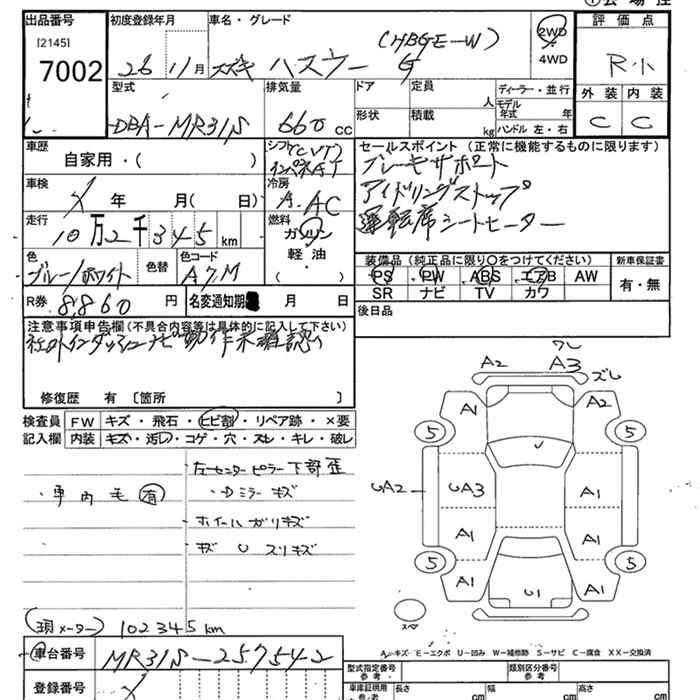 出品番号 初度登録年月 車名・グレード 評価点
[2145]
7002
26 11月 スズキ ハスラー G (HBGE-W)
2WD
・
4WD
R小
外装 内装
C C
型式 排気量 ドア 定員 ディーラー・並行
DBA-MR31S 660 CC 形状 積載 人 モデル年式 年
kg ハンドル 左・右
車歴 シフト(CVT) セールスポイント (正常に機能するものに限ります)
自家用・( ) インパネAT ブレーキサポート
車検 冷房 アイドリングストップ
年 月( 日) A.AC 運転席シートヒーター
走行 燃料
10万2千345km ガソリン
軽油
・( )
色 色替 色コード 装備品 (純正品に限り○をつけてください) 新車保証書
ブルー/ホワイト A7M PS PW ABS エアB AW 有・無
R券 8,860円 名変通知期 月 日 SR ナビ TV カワ
後日品
注意事項申告欄(不具合内容等は具体的に記入して下さい)
社外インダッシュナビ動作未確認
修復歴 有〔箇所 〕
検査員 FW キズ・飛石・ヒビ割・リペア跡・×要
記入欄 内装 キズ・汚レ・コゲ・穴・スレ・キレ・破レ
左センターピラー下部歪
・車内毛 有 ・Dミラーキズ
・ホイールガリキズ
・キズ U スリキズ
(現メーター) 102345km
車台番号 MR31S-257542
登録番号
ワレ
A2 A3 ズレ
A1 A2
5 5
U
UA2 UA3 A1
A1 A1
5 5
A1 U1 A1
スペア
A-キズ E-エクボ U-凹み W-補修跡 S-サビ C-腐食 XX-交換済
型式指定番号 参考 類別区分番号 参考
車庫証明用 参考 長さ cm 幅 cm 高さ cm